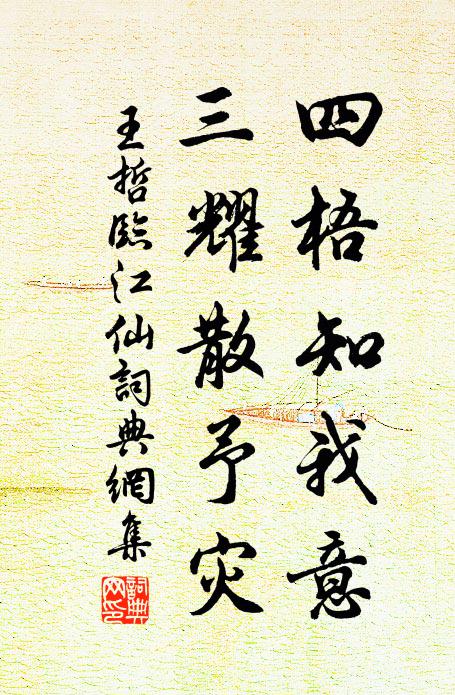 四梧知我意
三耀散予灾
王哲臨江仙詞典網集
詞典
网印